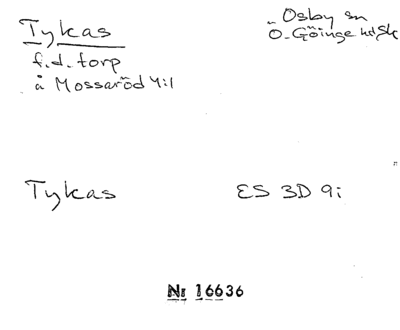 Tykas
f.d. torp
å Mossaröd 4:1
Osby sn
Ö-Göinge hd Sk
Tykas
ES 3D 9i
Nr 16636